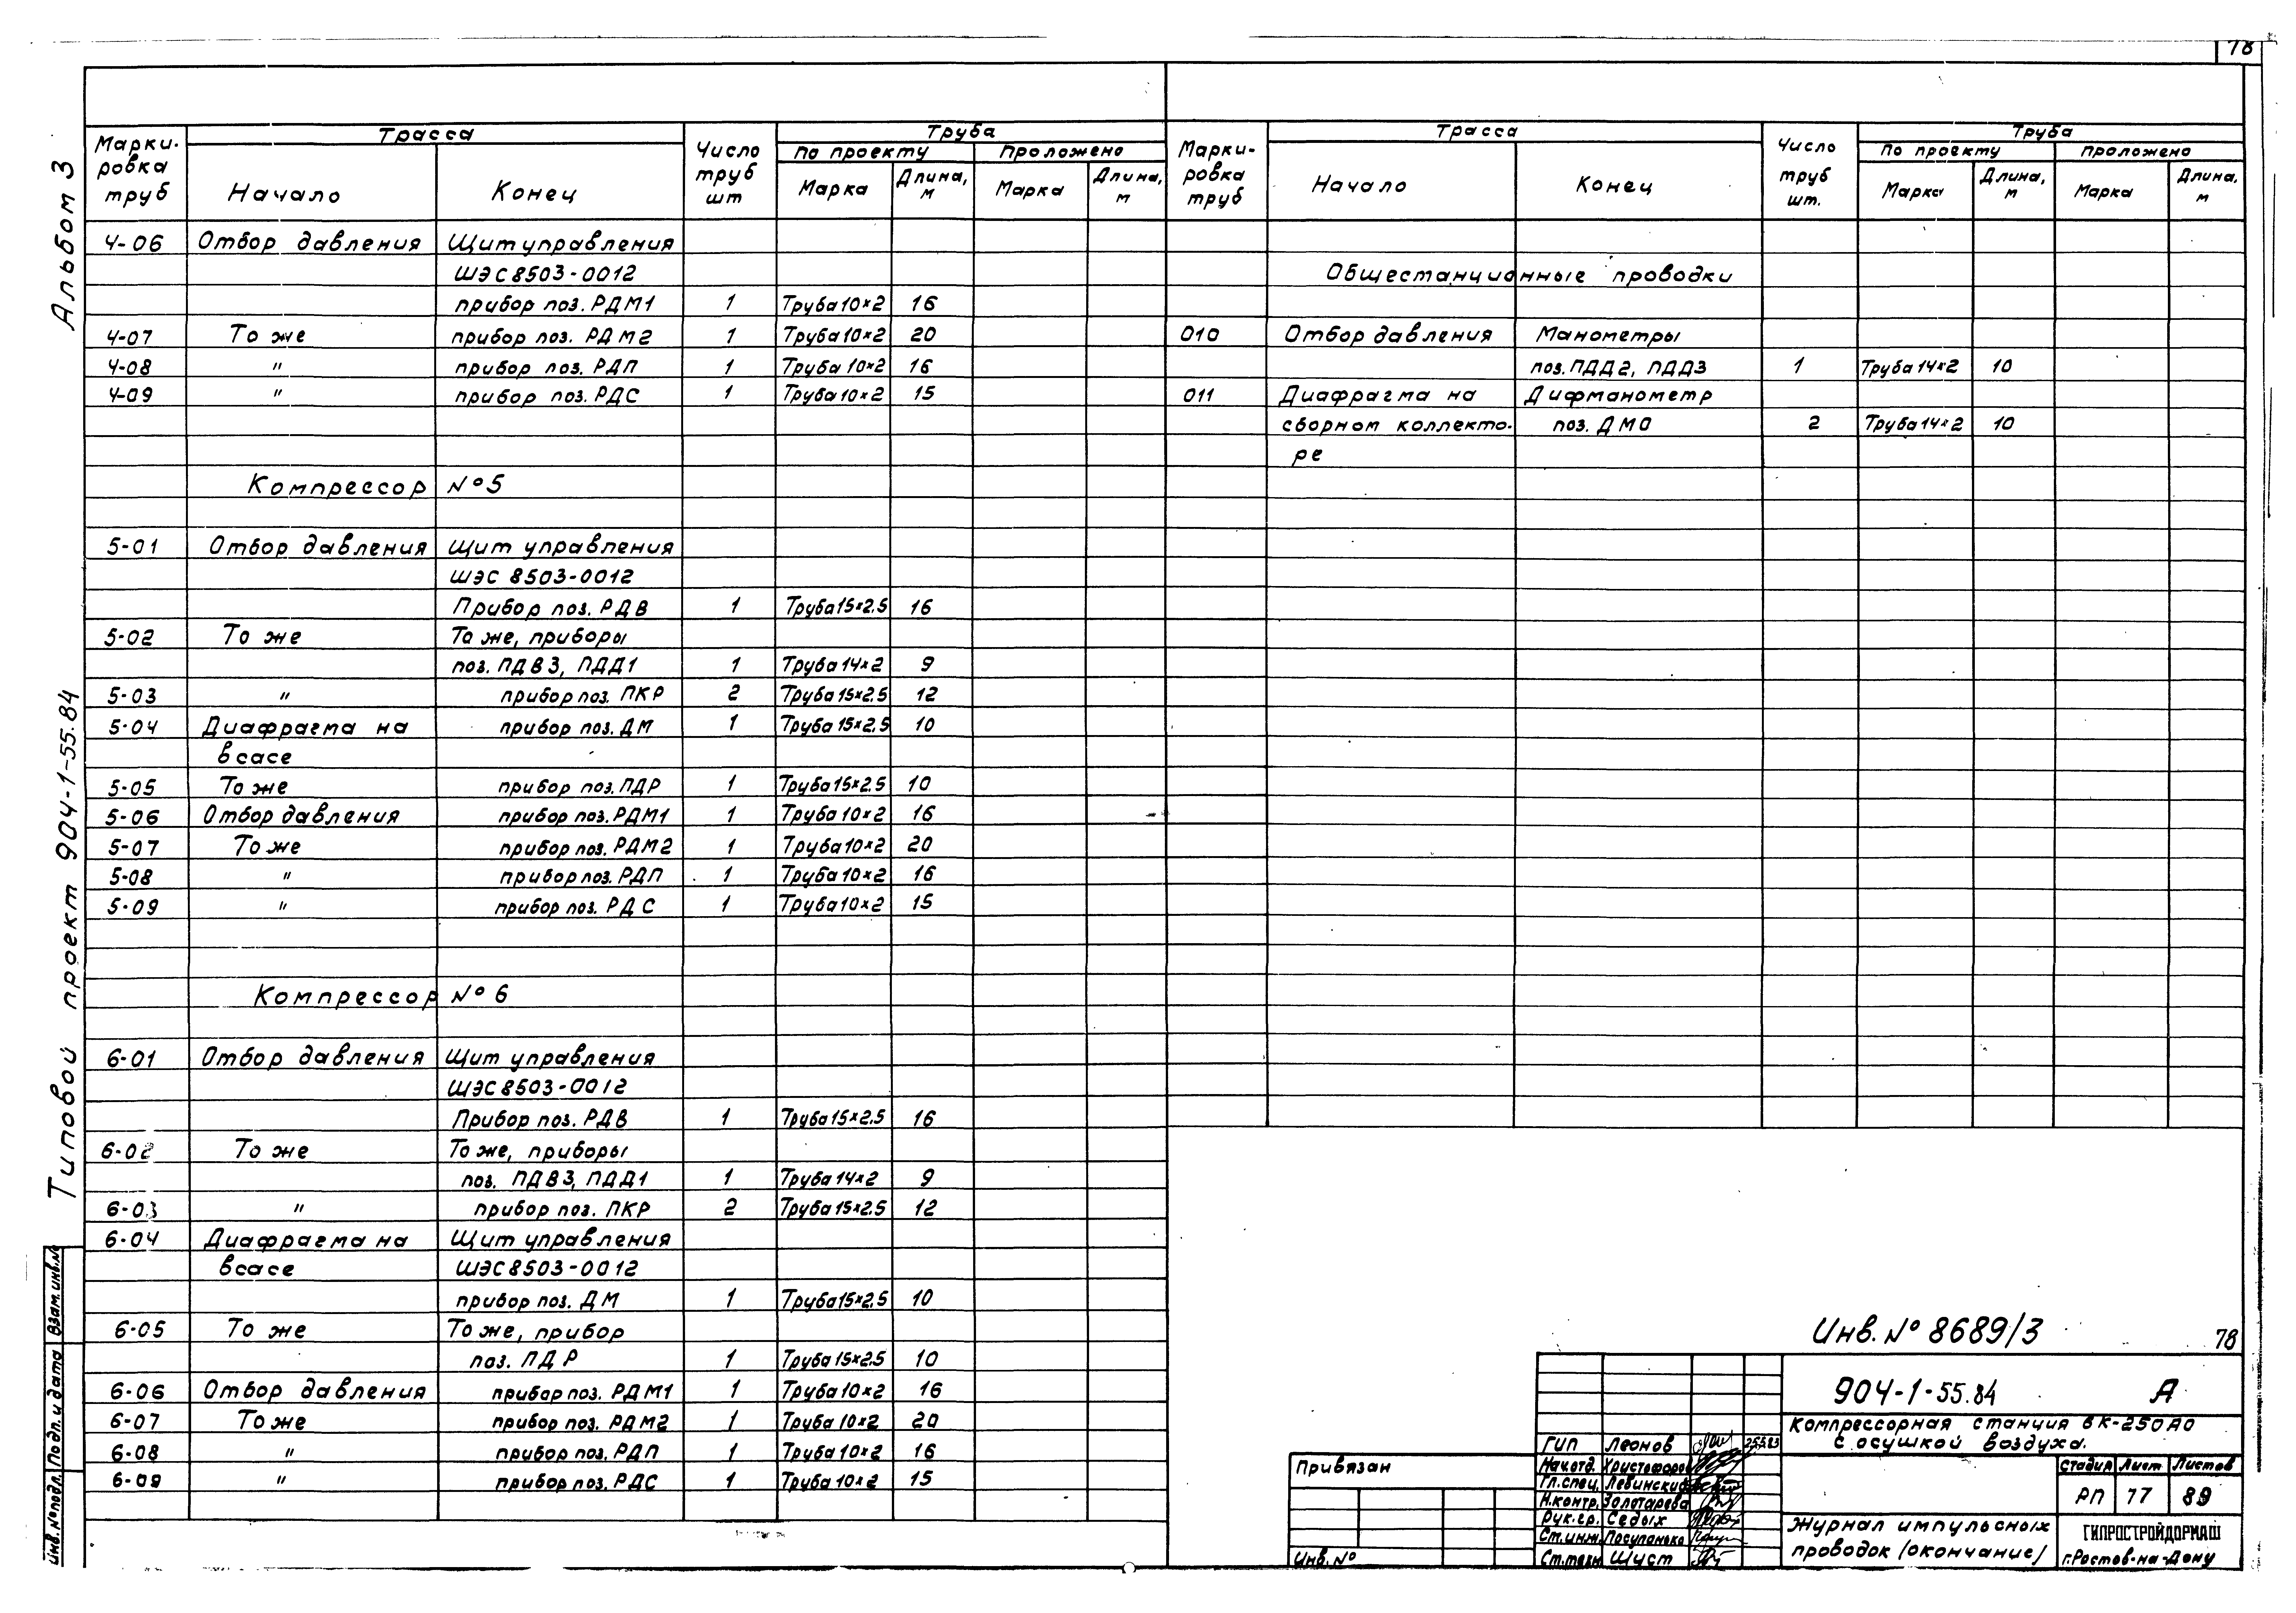 78
Альбом 3
Типовой проект 904-1-55.84
Взам. инв. №
Подп. и дата
Инв. № подл.
Марки-ровка труб | Трасса | Число труб шт | Труба
По проекту | Проложено
Начало | Конец | Марка | Длина, м | Марка | Длина, м
4-06 Отбор давления Щит управления
ШЭС 8503-0012
прибор поз. РДМ1 1 Труба 10×2 16
4-07 То же прибор поз. РДМ2 1 Труба 10×2 20
4-08 " прибор поз. РДП 1 Труба 10×2 16
4-09 " прибор поз. РДС 1 Труба 10×2 15
Компрессор №5
5-01 Отбор давления Щит управления
ШЭС 8503-0012
Прибор поз. РДВ 1 Труба 15×2.5 16
5-02 То же То же, приборы
поз. ПДВ3, ПДД1 1 Труба 14×2 9
5-03 " прибор поз. ПКР 2 Труба 15×2.5 12
5-04 Диафрагма на прибор поз. ДМ 1 Труба 15×2.5 10
всасе
5-05 То же прибор поз. ПДР 1 Труба 15×2.5 10
5-06 Отбор давления прибор поз. РДМ1 1 Труба 10×2 16
5-07 То же прибор поз. РДМ2 1 Труба 10×2 20
5-08 " прибор поз. РДП 1 Труба 10×2 16
5-09 " прибор поз. РДС 1 Труба 10×2 15
Компрессор №6
6-01 Отбор давления Щит управления
ШЭС 8503-0012
Прибор поз. РДВ 1 Труба 15×2.5 16
6-02 То же То же, приборы
поз. ПДВ3, ПДД1 1 Труба 14×2 9
6-03 " прибор поз. ПКР 2 Труба 15×2.5 12
6-04 Диафрагма на Щит управления
всасе ШЭС 8503-0012
прибор поз. ДМ 1 Труба 15×2.5 10
6-05 То же То же, прибор
поз. ПДР 1 Труба 15×2.5 10
6-06 Отбор давления прибор поз. РДМ1 1 Труба 10×2 16
6-07 То же прибор поз. РДМ2 1 Труба 10×2 20
6-08 " прибор поз. РДП 1 Труба 10×2 16
6-09 " прибор поз. РДС 1 Труба 10×2 15
Марки-ровка труб | Трасса | Число труб шт. | Труба
По проекту | Проложено
Начало | Конец | Марка | Длина, м | Марка | Длина, м
Общестанционные проводки
010 Отбор давления Манометры
поз. ПДД2, ПДД3 1 Труба 14×2 10
011 Диафрагма на Дифманометр
сборном коллекто- поз. ДМО 2 Труба 14×2 10
ре
Инв. № 8689/3 78
904-1-55.84 А
Компрессорная станция 6К-250АО
с осушкой воздуха.
Гип Леонов 25.5.83
Нач.отд. Христофоров
Гл.спец. Левинский
Н.контр. Золотарева
Рук.гр. Седых
Ст.инж. Посупонько
Ст.техн. Шуст
Привязан
Инв. №
Стадия Лист Листов
РП 77 89
Журнал импульсных
проводок /окончание/
ГИПРОСТРОЙДОРМАШ
г.Ростов-на-Дону